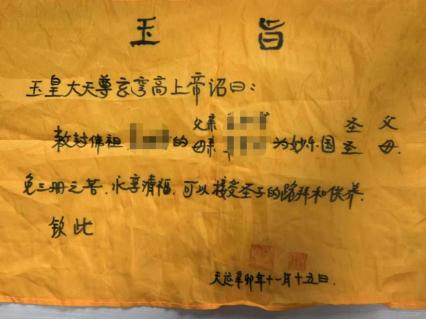 玉旨
玉皇大天尊玄穹高上帝诏曰:
父亲 圣父
敕封佛祖 的母亲 为妙乐国圣母.
免三册之苦.永享清福.可以接受圣子的跪拜和供养.
钦此
天运辛卯年十一月十五日.